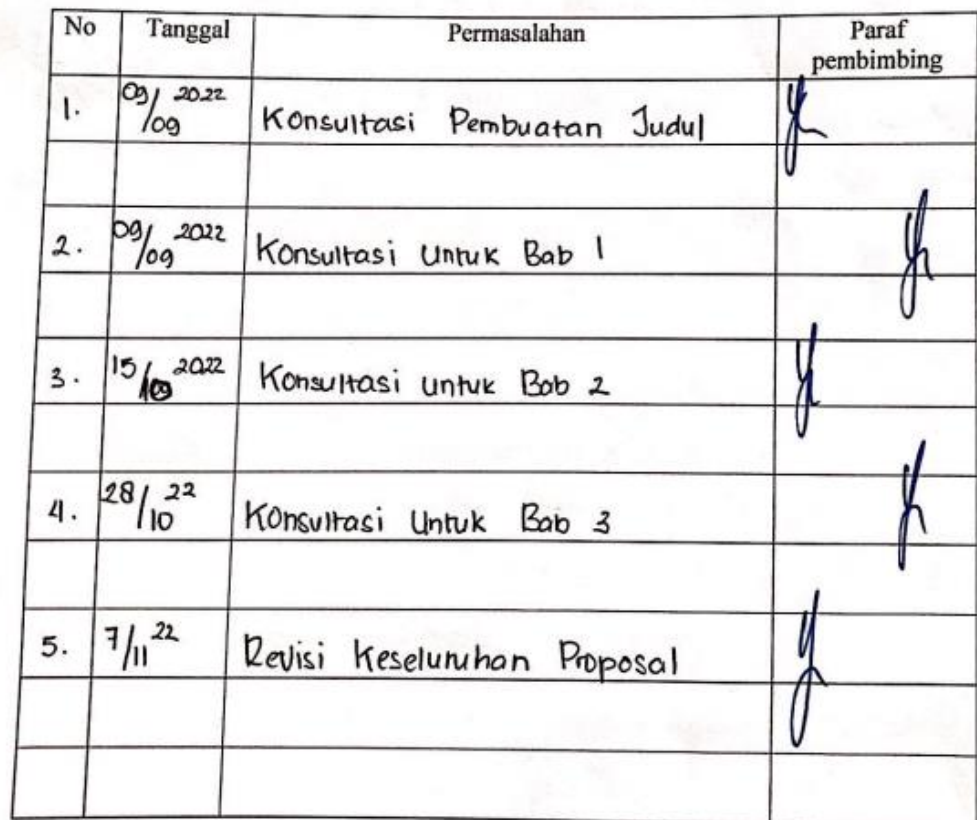 No Tanggal Permasalahan Paraf pembimbing
1. 09/09 2022 Konsultasi Pembuatan Judul
2. 09/09 2022 Konsultasi Untuk Bab 1
3. 15/09 2022 Konsultasi untuk Bab 2
4. 28/10 22 Konsultasi Untuk Bab 3
5. 7/11 22 Revisi Keseluruhan Proposal